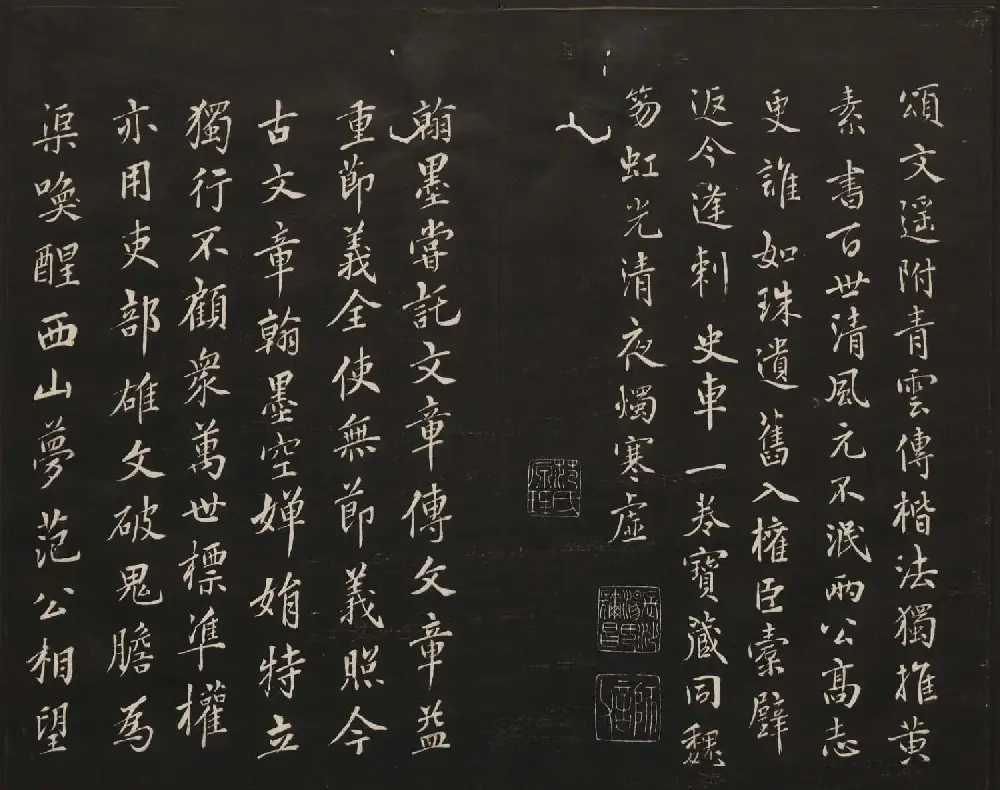 頌文遥附青雲傳楷法獨推黄
素書百世清風元不泯兩公高志
更誰如珠遺舊入權臣橐璧
返今逢刺史車一卷寶藏同魏
笏虹光清夜燭寒虚
翰墨嘗託文章傳文章益
重節義全使無節義照今
古文章翰墨空嬋娟特立
獨行不顧衆萬世標準權
亦用吏部雄文破鬼膽爲
渠喚醒西山夢范公相望